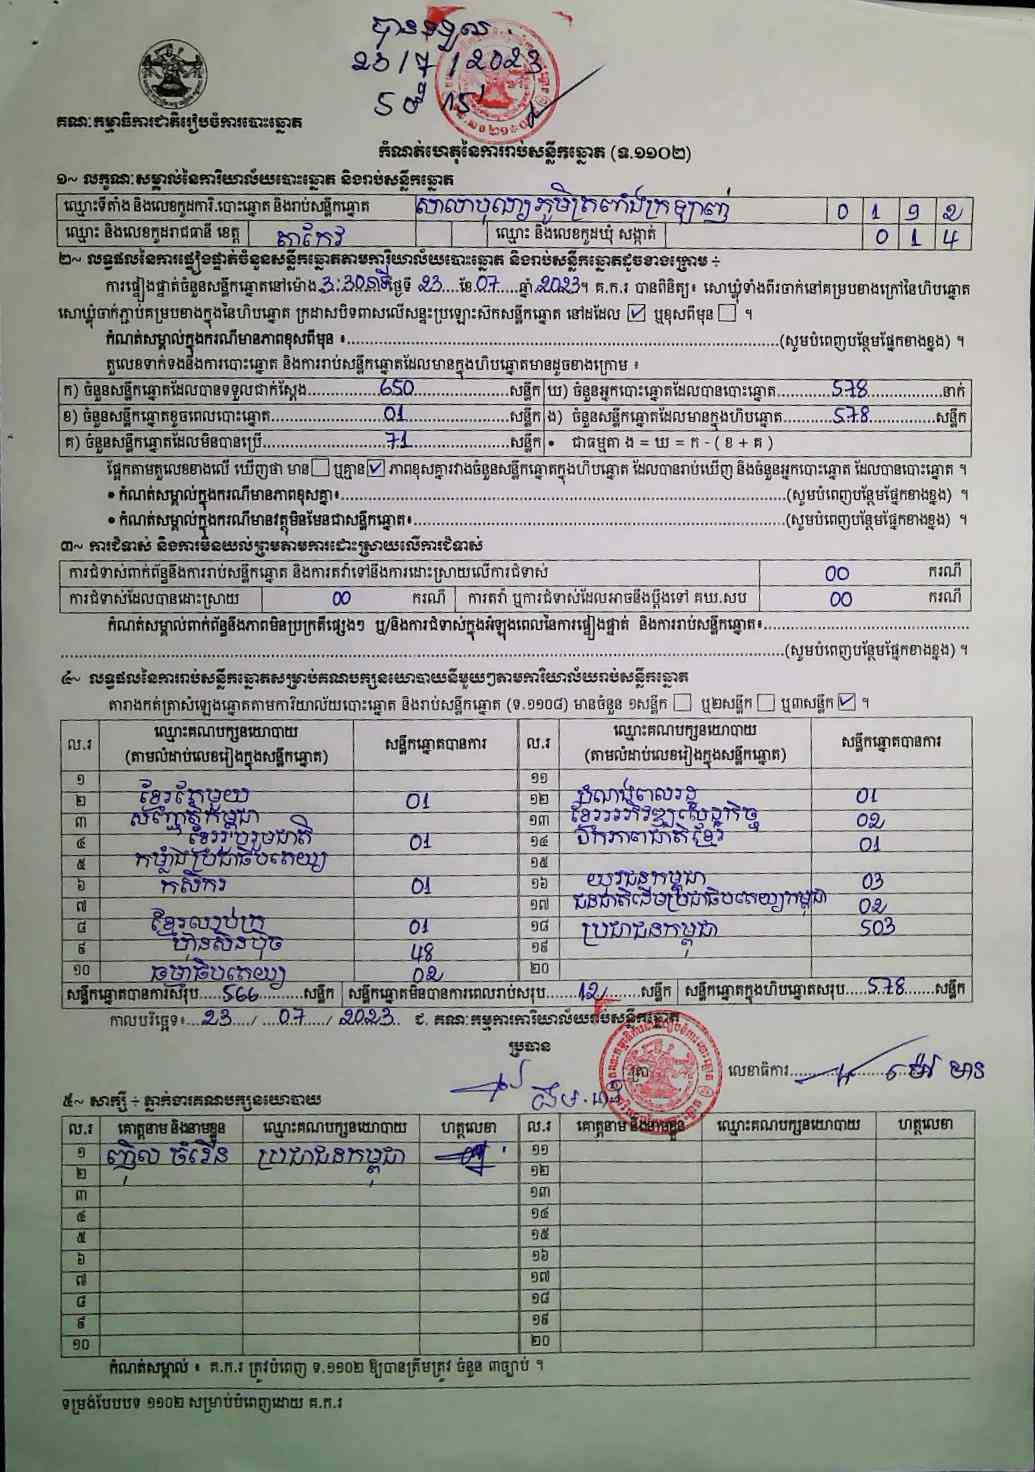 បានទទួល
23/7/2023
គណៈកម្មាធិការជាតិរៀបចំការបោះឆ្នោត
កំណត់ហេតុនៃការរាប់សន្លឹកឆ្នោត (ទ.១១០២)
១~ លក្ខណៈសម្គាល់នៃការិយាល័យបោះឆ្នោត និងរាប់សន្លឹកឆ្នោត
ឈ្មោះទីតាំង និងលេខកូដការិ.បោះឆ្នោត និងរាប់សន្លឹកឆ្នោត សាលាបុណ្យភូមិត្រពាំងក្រឡាញ់ 0 1 9 2
ឈ្មោះ និងលេខកូដរាជធានី ខេត្ត តាកែវ ឈ្មោះ និងលេខកូដឃុំ សង្កាត់ 0 1 4
២~ លទ្ធផលនៃការផ្ទៀងផ្ទាត់ចំនួនសន្លឹកឆ្នោតតាមការិយាល័យបោះឆ្នោត និងរាប់សន្លឹកឆ្នោតដូចខាងក្រោម ÷
ការផ្ទៀងផ្ទាត់ចំនួនសន្លឹកឆ្នោតនៅម៉ោង 3:30នាទី ថ្ងៃទី 23 ខែ 07 ឆ្នាំ 2023។ គ.ក.រ បានពិនិត្យ៖ សោឃ្លុំទាំងពីរចាក់នៅគម្របខាងក្រៅនៃហិបឆ្នោត
សោឃ្លុំចាក់ភ្ជាប់គម្របខាងក្នុងនៃហិបឆ្នោត ក្រដាសបិទពាសលើសន្ទះប្រឡោះស៊កសន្លឹកឆ្នោត នៅដដែល ☑ ឬខុសពីមុន ☐ ។
កំណត់សម្គាល់ក្នុងករណីមានភាពខុសពីមុន ៖ (សូមបំពេញបន្ថែមផ្នែកខាងខ្នង) ។
តួលេខទាក់ទងនឹងការបោះឆ្នោត និងការរាប់សន្លឹកឆ្នោតដែលមានក្នុងហិបឆ្នោតមានដូចខាងក្រោម ៖
ក) ចំនួនសន្លឹកឆ្នោតដែលបានទទួលជាក់ស្តែង 650 សន្លឹក ឃ) ចំនួនអ្នកបោះឆ្នោតដែលបានបោះឆ្នោត 578 នាក់
ខ) ចំនួនសន្លឹកឆ្នោតខូចពេលបោះឆ្នោត 01 សន្លឹក ង) ចំនួនសន្លឹកឆ្នោតដែលមានក្នុងហិបឆ្នោត 578 សន្លឹក
គ) ចំនួនសន្លឹកឆ្នោតដែលមិនបានប្រើ 71 សន្លឹក • ជាធម្មតា ង = ឃ = ក - ( ខ + គ )
ផ្អែកតាមតួលេខខាងលើ ឃើញថា មាន ☐ ឬគ្មាន ☑ ភាពខុសគ្នារវាងចំនួនសន្លឹកឆ្នោតក្នុងហិបឆ្នោត ដែលបានរាប់ឃើញ និងចំនួនអ្នកបោះឆ្នោត ដែលបានបោះឆ្នោត ។
• កំណត់សម្គាល់ក្នុងករណីមានភាពខុសគ្នា៖ (សូមបំពេញបន្ថែមផ្នែកខាងខ្នង) ។
• កំណត់សម្គាល់ក្នុងករណីមានវត្ថុមិនមែនជាសន្លឹកឆ្នោត៖ (សូមបំពេញបន្ថែមផ្នែកខាងខ្នង) ។
៣~ ការជំទាស់ និងការមិនយល់ព្រមតាមការដោះស្រាយលើការជំទាស់
ការជំទាស់ពាក់ព័ន្ធនឹងការរាប់សន្លឹកឆ្នោត និងការតវ៉ាទៅនឹងការដោះស្រាយលើការជំទាស់ 00 ករណី
ការជំទាស់ដែលបានដោះស្រាយ 00 ករណី ការតវ៉ា ឬការជំទាស់ដែលអាចនឹងប្តឹងទៅ គឃ.សប 00 ករណី
កំណត់សម្គាល់ពាក់ព័ន្ធនឹងភាពមិនប្រក្រតីផ្សេងៗ ឬ/និងការជំទាស់ក្នុងអំឡុងពេលនៃការផ្ទៀងផ្ទាត់ និងការរាប់សន្លឹកឆ្នោត៖
(សូមបំពេញបន្ថែមផ្នែកខាងខ្នង) ។
៤~ លទ្ធផលនៃការរាប់សន្លឹកឆ្នោតសម្រាប់គណបក្សនយោបាយនីមួយៗតាមការិយាល័យរាប់សន្លឹកឆ្នោត
តារាងកត់ត្រាសំឡេងឆ្នោតតាមការិយាល័យបោះឆ្នោត និងរាប់សន្លឹកឆ្នោត (ទ.១១០៨) មានចំនួន ១សន្លឹក ☐ ឬ២សន្លឹក ☐ ឬ៣សន្លឹក ☑ ។
ល.រ ឈ្មោះគណបក្សនយោបាយ (តាមលំដាប់លេខរៀងក្នុងសន្លឹកឆ្នោត) សន្លឹកឆ្នោតបានការ ល.រ ឈ្មោះគណបក្សនយោបាយ (តាមលំដាប់លេខរៀងក្នុងសន្លឹកឆ្នោត) សន្លឹកឆ្នោតបានការ
១ ១១
២ ខ្មែរតែមួយ 01 ១២ តំណាងពលរដ្ឋ 01
៣ សញ្ជាតិកម្ពុជា ១៣ ខ្មែរអភិវឌ្ឍសេដ្ឋកិច្ច 02
៤ ខ្មែររួបរួមជាតិ 01 ១៤ ឯកភាពជាតិខ្មែរ 01
៥ កម្លាំងប្រជាធិបតេយ្យ ១៥
៦ កសិករ 01 ១៦ យុវជនកម្ពុជា 03
៧ ១៧ ជនជាតិដើមប្រជាធិបតេយ្យកម្ពុជា 02
៨ ខ្មែរឈប់ក្រ 01 ១៨ ប្រជាជនកម្ពុជា 503
៩ ហ្វ៊ុនស៊ិនប៉ិច 48 ១៩
១០ ធម្មាធិបតេយ្យ 02 ២០
សន្លឹកឆ្នោតបានការសរុប 566 សន្លឹក សន្លឹកឆ្នោតមិនបានការពេលរាប់សរុប 12 សន្លឹក សន្លឹកឆ្នោតក្នុងហិបឆ្នោតសរុប 578 សន្លឹក
កាលបរិច្ឆេទ៖ 23 / 07 / 2023 ជ. គណៈកម្មការការិយាល័យរាប់សន្លឹកឆ្នោត
ប្រធាន
ត្រា លេខាធិការ
៥~ សាក្សី ÷ ភ្នាក់ងារគណបក្សនយោបាយ
ល.រ គោត្តនាម និងនាមខ្លួន ឈ្មោះគណបក្សនយោបាយ ហត្ថលេខា ល.រ គោត្តនាម និងនាមខ្លួន ឈ្មោះគណបក្សនយោបាយ ហត្ថលេខា
១ ញ៉ិល ចំរើន ប្រជាជនកម្ពុជា ១១
២ ១២
៣ ១៣
៤ ១៤
៥ ១៥
៦ ១៦
៧ ១៧
៨ ១៨
៩ ១៩
១០ ២០
កំណត់សម្គាល់ ៖ គ.ក.រ ត្រូវបំពេញ ទ.១១០២ ឱ្យបានត្រឹមត្រូវ ចំនួន ៣ច្បាប់ ។
ទម្រង់បែបបទ ១១០២ សម្រាប់បំពេញដោយ គ.ក.រ